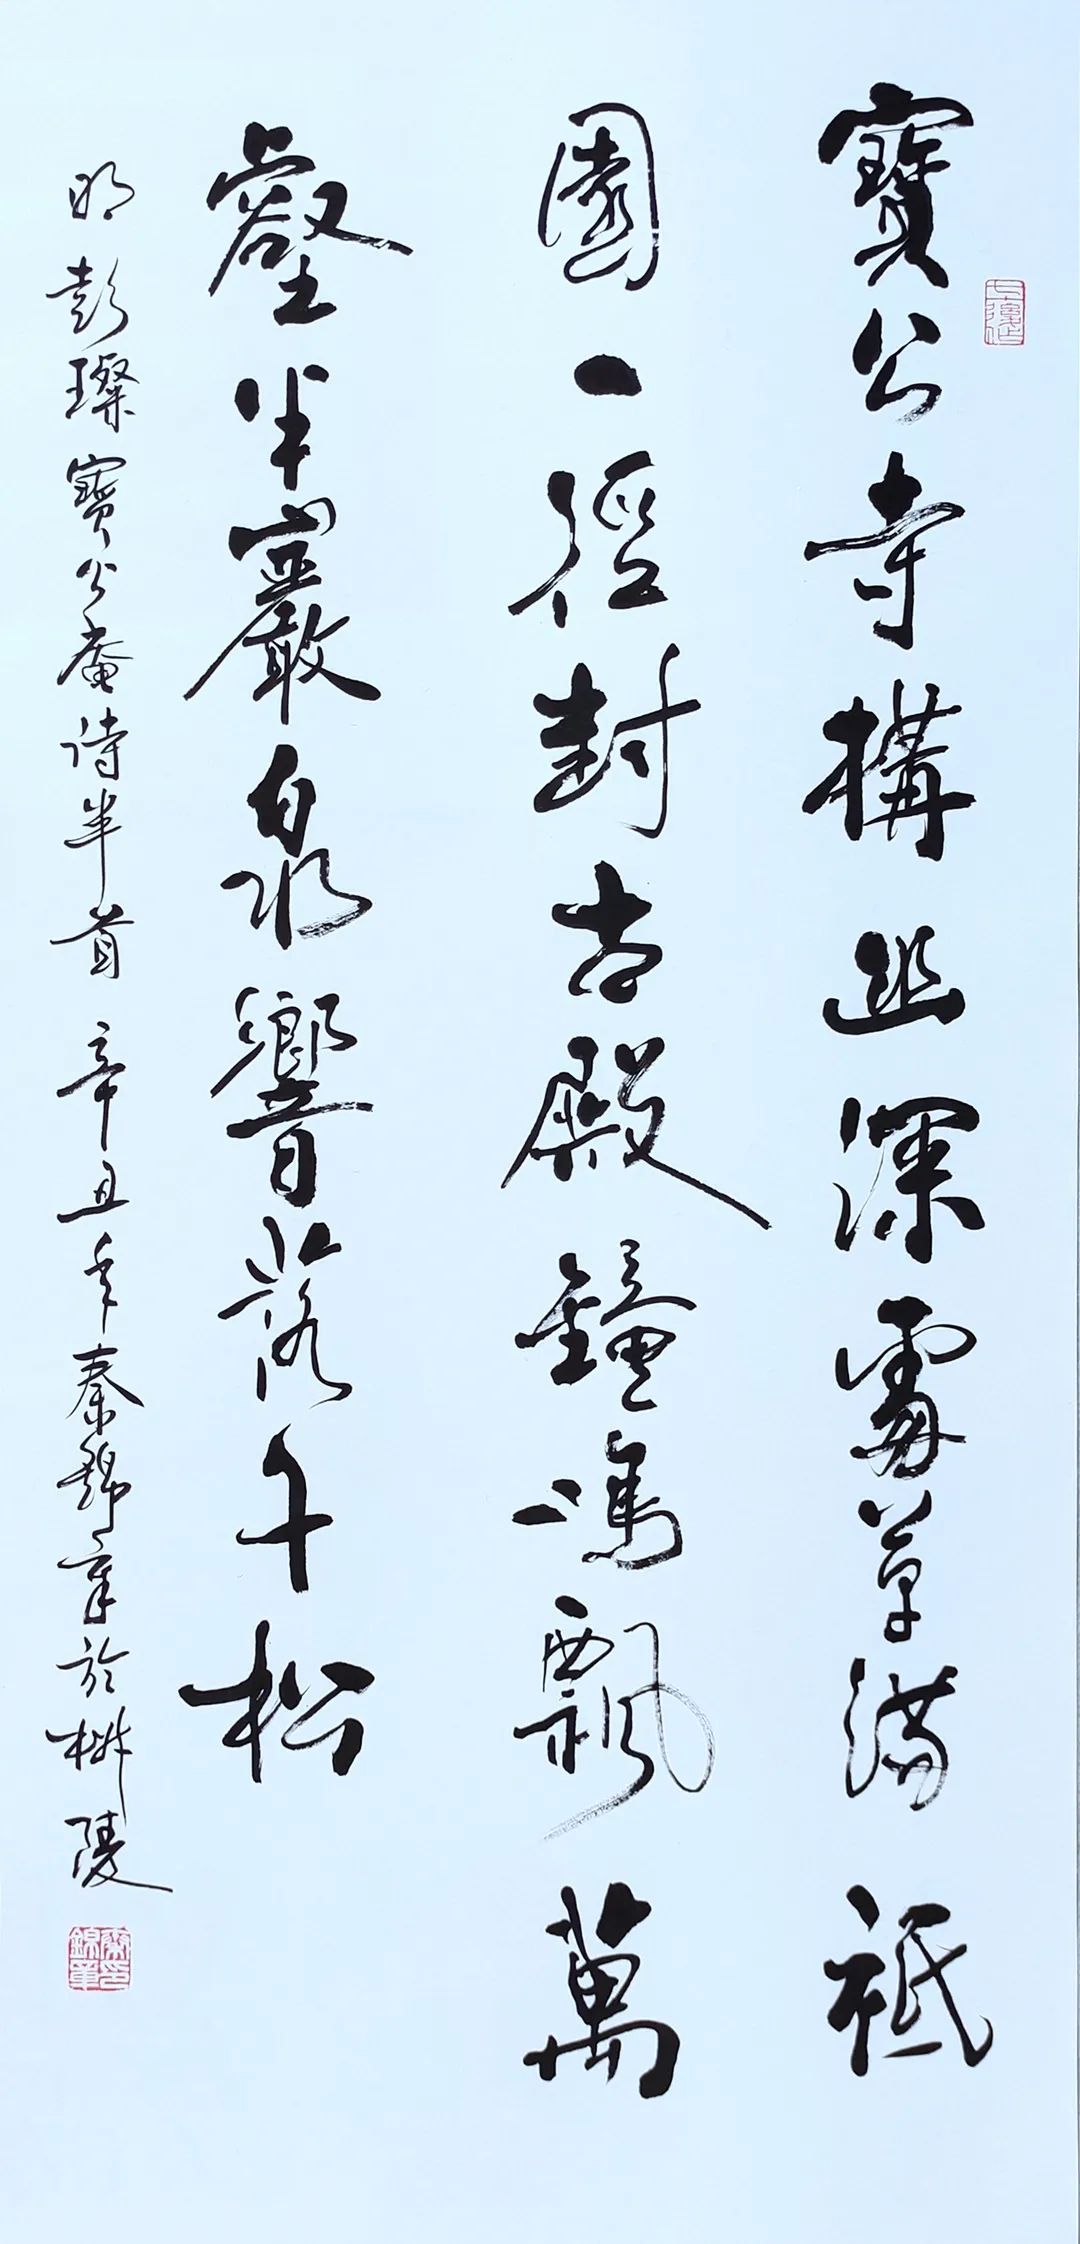 寶公寺構幽深處草滿祇
園一徑封古殿鐘鳴飄萬
壑半巖泉響落千松
明彭璨寶公庵诗半首 辛丑年秦錦章於楙陵
秦錦章印